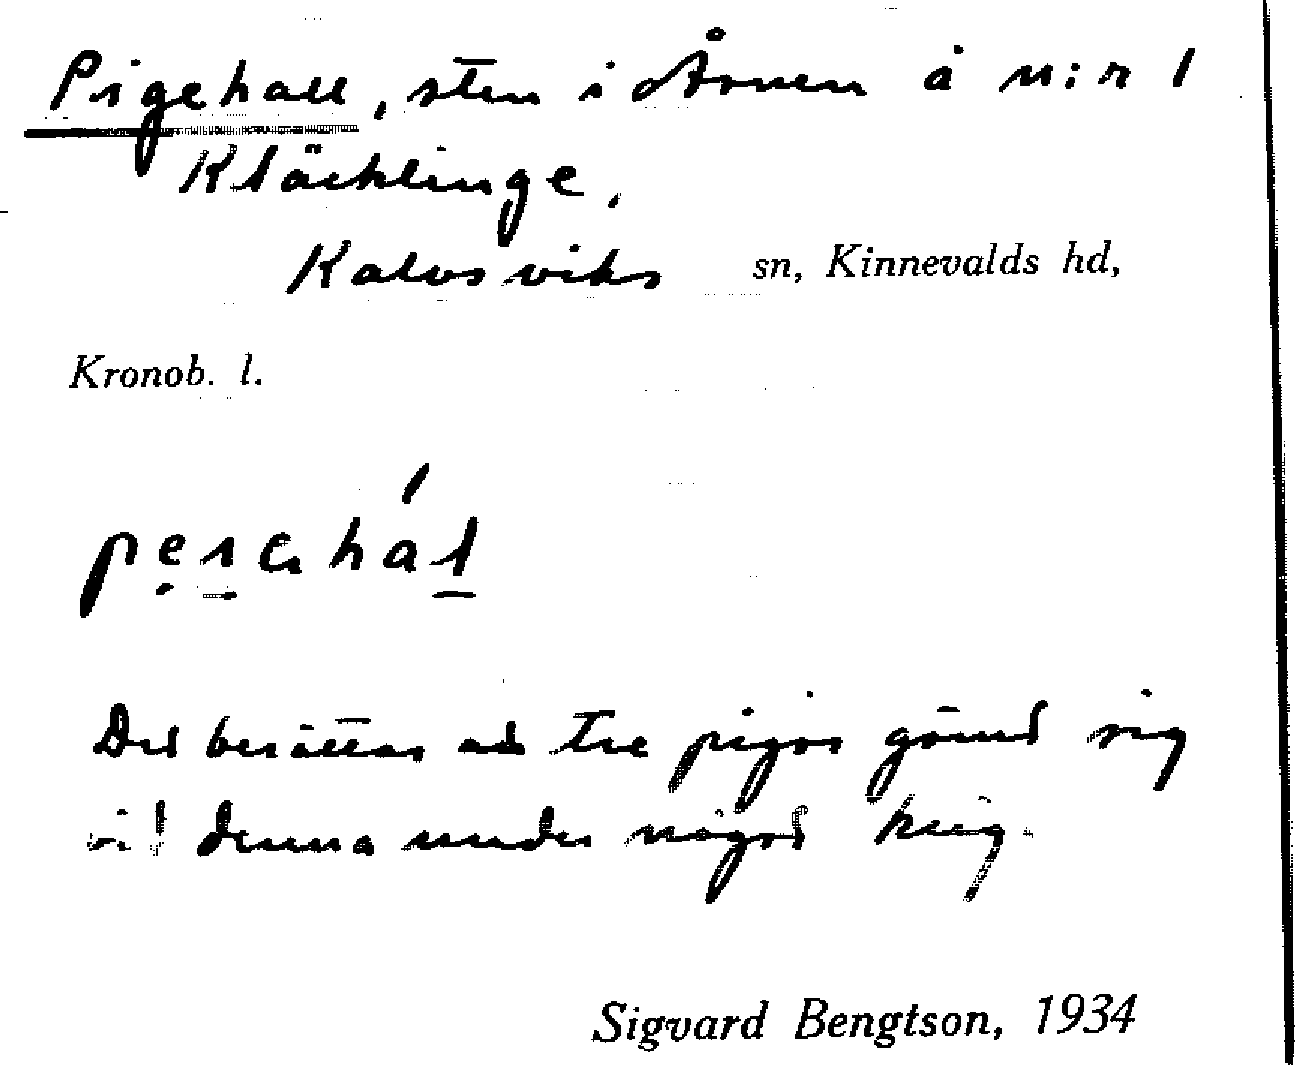 Pigehall, sten i Årnen å n:r 1
Kläcklinge,
Kalvsviks sn, Kinnevalds hd,
Kronob. l.
Det berättas att tre pigor gömt sig
vid denna under något krig.
Sigvard Bengtson, 1934